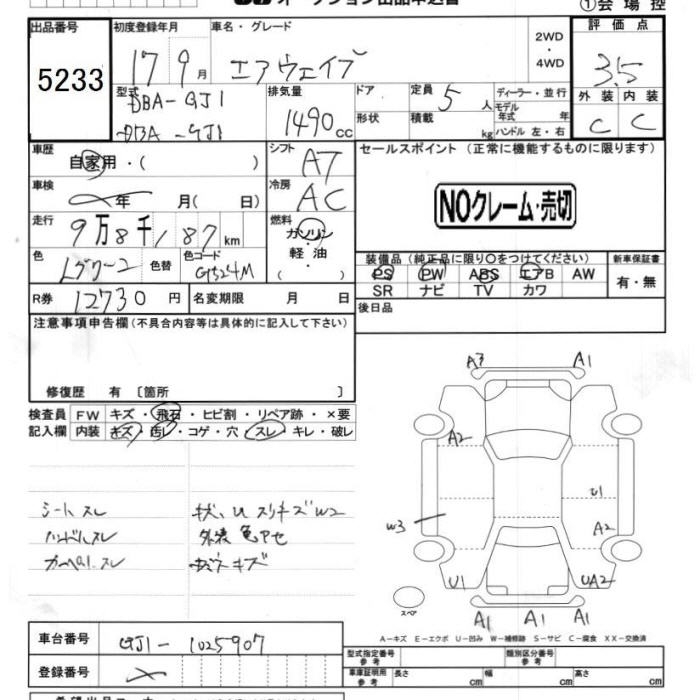 ①会場控
出品番号 初度登録年月 車名・グレード 評価点
5233 17 9月 エアウェイブ 2WD・4WD 3.5
型式 排気量 ドア 定員 5人 ディーラー・並行 外装 内装
DBA-GJ1 1490cc 形状 積載 kg モデル年式 年 C C
DBA-GJ1 ハンドル 左・右
車歴 シフト セールスポイント (正常に機能するものに限ります)
自家用・( ) AT
車検 年 月( 日) 冷房 AC NOクレーム・売切
走行 9万8千187km 燃料 ガソリン・軽油・( )
色 色替 色コード G524M 装備品(純正品に限り○をつけてください) 新車保証書
PS PW ABS エアB AW 有・無
SR ナビ TV カワ
R券 12730円 名変期限 月 日 後日品
注意事項申告欄(不具合内容等は具体的に記入して下さい)
修復歴 有〔箇所 〕
検査員 FW キズ・飛石・ヒビ割・リペア跡・×要
記入欄 内装 キズ・汚レ・コゲ・穴・スレ・キレ・破レ
シートスレ
ハンドルスレ 外装色アセ
スレ キズ
A3 A1
A2
U1
W3 A2
U1 UA2
スペア
A1 A1 A1
A-キズ E-エクボ U-凹み W-補修跡 S-サビ C-腐食 XX-交換済
車台番号 GJ1-1025907
登録番号
型式指定番号 参考 類別区分番号 参考
車庫証明用 参考 長さ cm 幅 cm 高さ cm